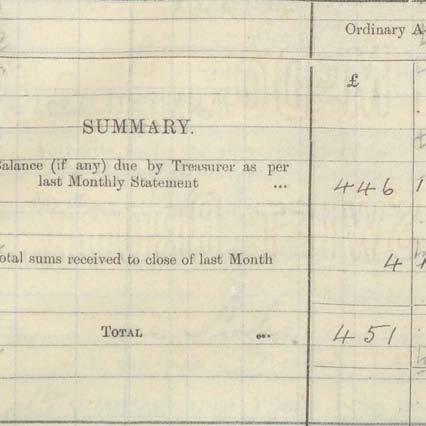 Ordinary A
£
SUMMARY.
alance (if any) due by Treasurer as per
last Monthly Statement ... 446 1
otal sums received to close of last Month 4
TOTAL ... 451